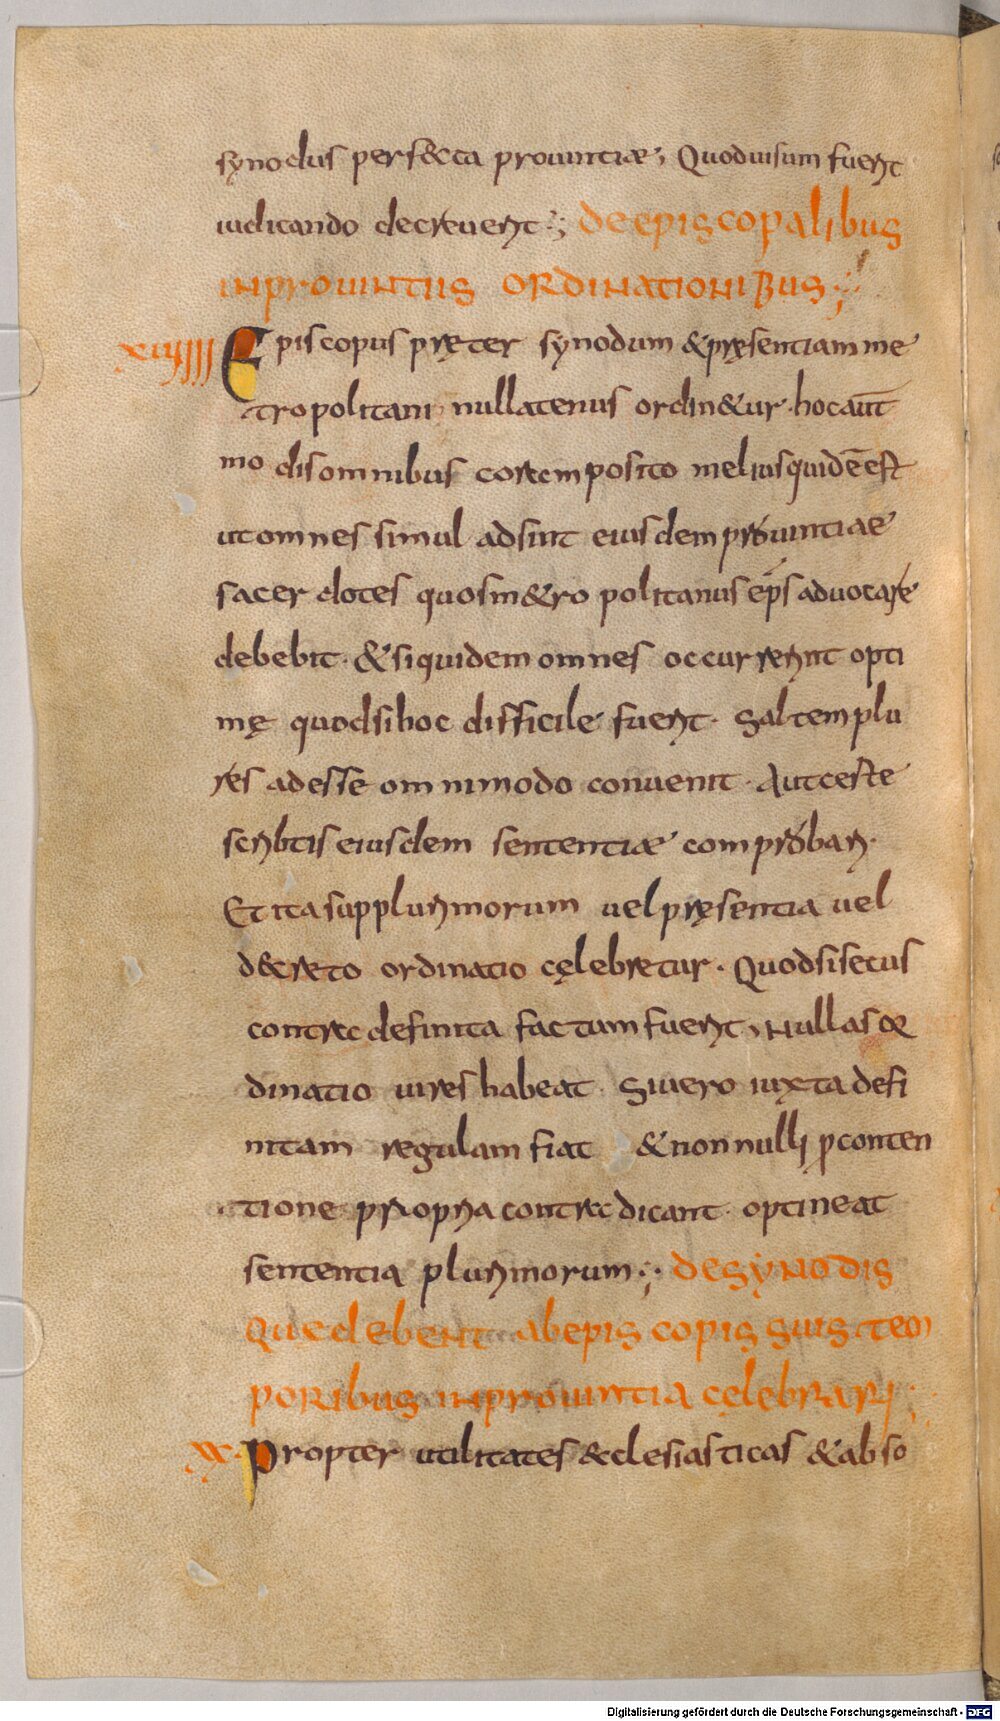 synodus perfecta prouintiae; Quoduisum fuerit
iudicando decreuerit:; deepiscopalibus
inprouintiis ordinationibus;
xuiiii Episcopus pręter synodum &pręsentiamme
tropolitani nullatenus ordin&ur. hocaūt
mo disomnibus corem posito meliusquidē est
utomnes simul adsint eiusdem prouintiae
sacerdotes quosm&ropolitanus ep̄s aduocare
debebit. &siquidem omnes occurrerint opti
mę quodsihoc difficile fuerit. Saltem plu
res adesse omnimodo conuenit. Autceste
scribtis eiusdem sententiae comprobari.
Et ita supplurimorum uel pręsentia uel
d&reto ordinatio cęlebretur. Quodsisecus
contrac definita factum fuerit, Nullas or
dinatio uires habeat. Siuero iuxta defi
nitam regulam fiat &nonnulli ꝑconten
tione propria contrac dicant. optineat
sententia plurimorum:; desynodis
Quedebent abepiscopis suis tem
poribus inprouintia cęlebrari;
xx. Propter utilitates &clesiasticas &abso
Digitalisierung gefördert durch die Deutsche Forschungsgemeinschaft - DFG